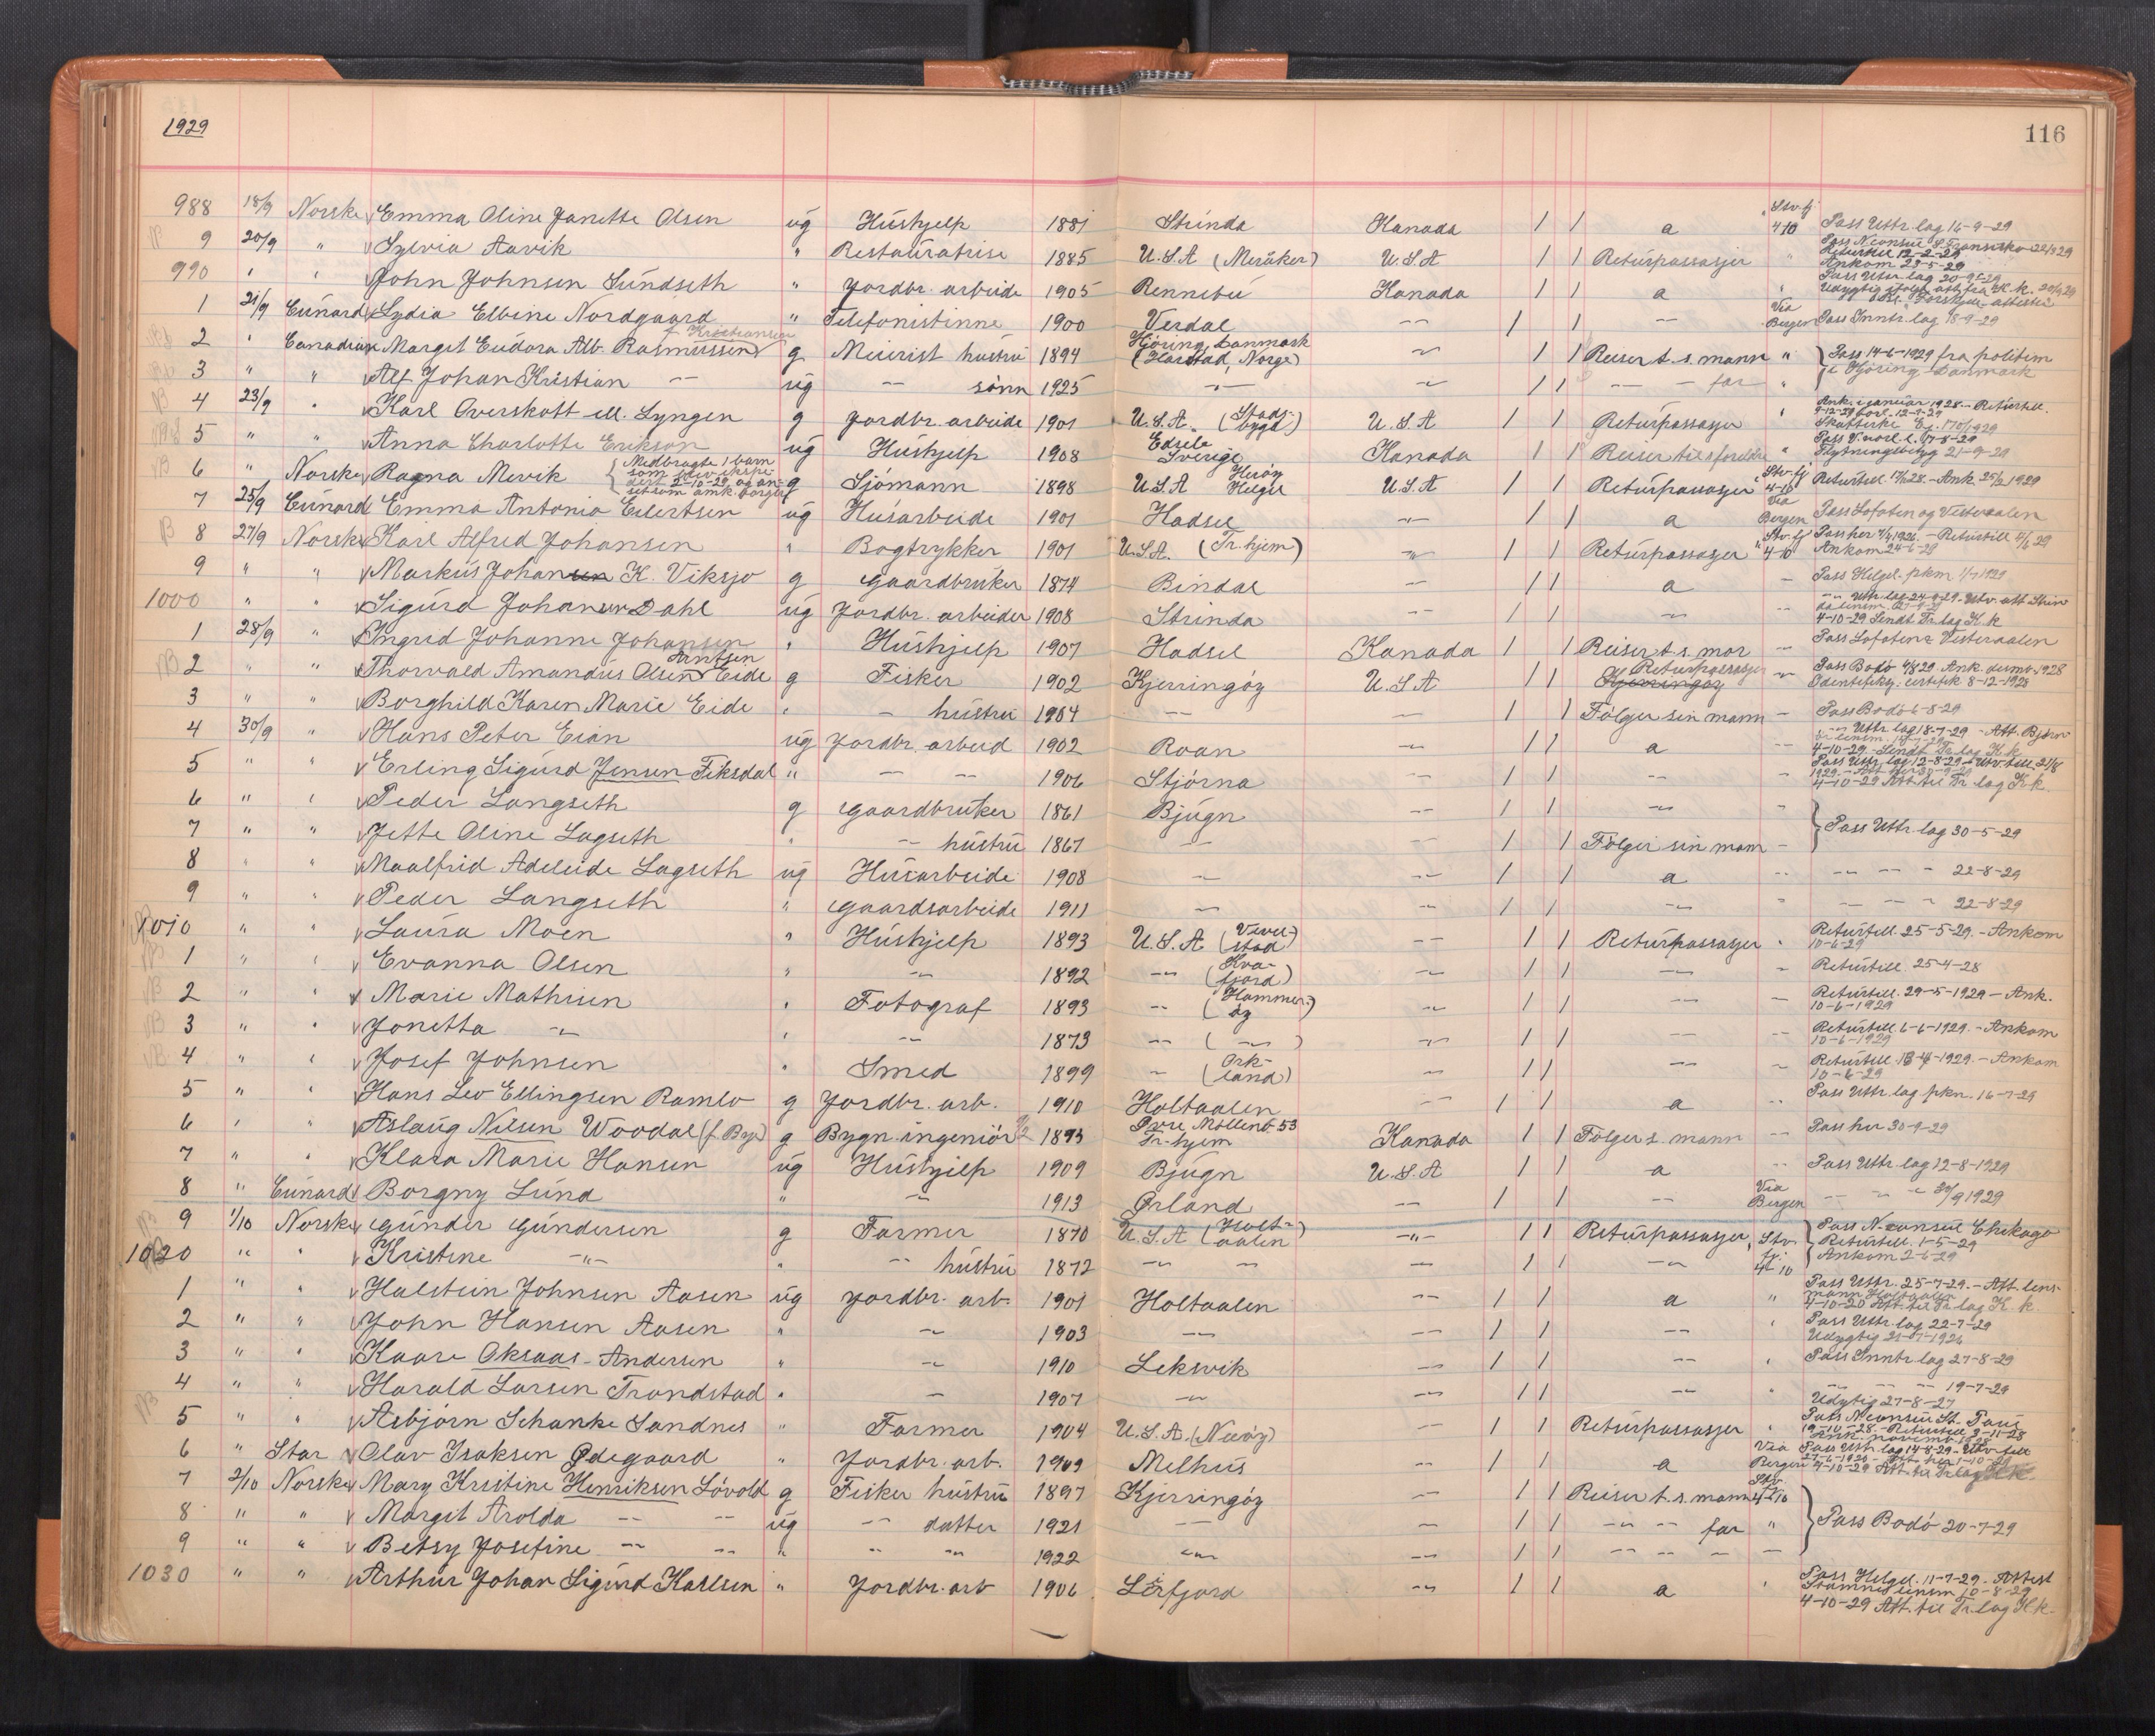 1929
116
988 18/9 Norske Emma Oline Janette Olsen ug Hushjelp 1881 Strinda Kanada / / a Stv.fj 4/10 Pass Uttr.lag 16-9-29
9 20/9 " Sylvia Aavik " Restauratrise 1885 U.S.A (Meråker) U.S.A / / Returpassasjer " Returtill 12-2-29 Ankom 23-5-29
990 " " John Johnsen Sundseth " Jordbr. arbeide 1905 Rennebu Kanada / / a " Pass Uttr.lag 20-9-29
1 21/9 Cunard Lydia Elbine Nordgaard " Telefonistinne 1900 Verdal -"- / / -"- Via Bergen Pass Inntr.lag 18-9-29
2 " Canadian Margit Eudora Alb. Rasmussen f. Kristiansen g Meierist hustru 1894 Hjöring, Danmark (Harstad, Norge) -"- / / Reiser t. s. mann " Pass 14-6-1929 fra politiem i Hjöring Danmark
3 " " Alf Johan Kristian -"- ug -"- sönn 1925 -"- -"- / / -"- - far "
4 23/9 " Karl Overskott ell. Lyngen g Jordbr. arbeide 1901 U.S.A. (Stadsbygd) U.S.A / / Returpassasjer " Ank. januar 1928 - Returtill.
5 " " Anna Charlotte Erikson ug Hushjelp 1908 Edsele Sverige Kanada / / Reiser til s foreldre " Flytningsbetyg 21-9-29
6 " Norske Ragna Mervik (Medbragte 1 barn som blev ekspedert 2-10-29 og ansett som amk. borger) g Sjömann 1898 U.S.A Heröy Helgel U.S.A / / Returpassasjer Stv.fj 4-10 Returtill. 17/1 28. - Ank. 25/2 1929
7 25/9 Cunard Emma Antonia Eilertsen ug Husarbeide 1901 Hadsel -"- / / a Via Bergen Pass Lofoten og Vesteraalen
8 27/9 Norske Karl Alfred Johansen " Bogtrykker 1901 U.S.A. (Tr.hjem) -"- / / Returpassasjer Stv.fj 4-10 Ankom 24-6-29
9 " " Markus Johansen K. Viksjo g Gaardbruker 1874 Bindal -"- / / a - Pass Helgel. pkm 1/7 1929
1000 " " Sigurd Johansen Dahl ug Jordbr. arbeider 1908 Strinda -"- / / -"- -"- 4-10-29 Sendt Tr.lag K.k
1 28/9 " Ingrid Johanne Johansen " Hushjelp 1907 Hadsel Kanada / / Reiser t. s. mor - Pass Lofoten & Vesteraalen
2 " " Thorvald Amandus Olsen Arntsen Eide g Fisker 1902 Kjerringöy U.S.A / / Returpassasjer Kjerringöy -"- Pass Bodö 4/9 29. Ank. desmb. 1928 Identifiksj. certefik 8-12-1928
3 " " Borghild Karen Marie Eide " - hustru 1904 -"- -"- / / Fölger sin mann - Pass Bodö 6-8-29
4 30/9 " Hans Peter Eian ug Jordbr. arbeid 1902 Roan -"- / / a -"- -"- Uttr.lag 18-7-29 - Att. Björnör lensm. 4-10-29 - Sendt Tr.lag K.k
5 " " Erling Sigurd Jensen Fiksdal " -"- -"- 1906 Stjörna -"- / / -"- - Pass Uttr.lag 12-8-29 - Utv.till 21/8 1929 4-10-29 Att. til Tr.lag K.k.
6 " " Peder Langseth g Gaardbruker 1861 Bjugn -"- / / -"- -
7 " " Jette Oline Lagseth " - hustru 1867 -"- - / / Fölger sin mann - Pass Uttr.lag 30-5-29
8 " " Maalfrid Adeleide Lagseth ug Husarbeide 1908 -"- -"- / / a -"- -"- -"- - 22-8-29
9 " " Peder Langseth " Gaardsarbeide 1911 -"- -"- / / -"- " -"- -"- - 22-8-29
1010 " " Laura Moen " Hushjelp 1893 U.S.A (Vevelstad) -"- / / Returpassasjer " Returtill. 25-5-29. - Ankom 10-6-29
1 " " Evanna Olsen " -"- 1892 -"- (Kvafjord) -"- / / -"- - Returtill. 25-4-28
2 " " Marie Mathisen " Fotograf 1893 -"- (Hammeröy) -"- / / -"- - Returtill. 29-5-1929 - Ank. 10-6-1929
3 " " Jonetta -"- " -"- 1873 -"- ( -"- ) -"- / / -"- -"- Returtill. 6-6-1929. - Ankom 10-6-1929
4 " " Josef Johnsen " Smed 1899 -"- (Orkland) -"- / / -"- - Returtill. 18-4-1929. - Ankom 10-6-29
5 " " Hans Leo Ellingsen Ramlo g Jordbr. arb. 1910 Holtaalen -"- / / a " Pass Uttr.lag pkn. 16-7-29
6 " " Aslaug Nilsen Woodal (f. Bye) g Bygn. ingeniör 1893 Övre Möllenb. 53 Tr-hjem Kanada / / Fölger s. mann -"- Pass her 30-9-29
7 " " Klara Marie Hansen ug Hushjelp 1909 Bjugn U.S.A / / a " Pass Uttr.lag 12-8-1929
8 " Cunard Borgny Lund " -"- 1913 Ørland -"- / / -"- Via Bergen -"- -"- - 30/9 1929
9 1/10 Norske Gunder Gundersen g Farmer 1870 U.S.A (Holtaalen) -"- / / Returpassasjer Stv. fj. 4-10 Pass N.consul Chikago Returtill. 1-5-29 Ankom 2-6-29
1020 " " Kristine -"- " -"- hustru 1872 -"- -"- -"- / / -"-
1 " " Halstein Johnsen Aasen ug Jordbr. arb. 1901 Holtaalen -"- / / a " Pass Uttr. 25-7-29. - Att. lensmann Holtaalen 4-10-20 Att. til Tr.lag K.k.
2 " " John Hansen Aasen " -"- 1903 -"- -"- / / -"- " Pass Uttr.lag 22-7-29
3 " " Kaare Oksaas-Andersen " -"- 1910 Leksvik -"- / / -"- " Pass Inntr.lag 27-8-29
4 " " Harald Larsen Trondstad " - 1907 -"- -"- / / -"- " -"- -"- -"- 19-7-29 Udygtig 27-8-27
5 " " Asbjörn Schanke Sandnes " Farmer 1904 U.S.A. (Nesöy) -"- / / Returpassasjer " Pass N.consul St. Paul 19-10-28 - Returtill 3-11-28
6 " Star Olav Isaksen Ødegaard " Jordbr. arb. 1909 Melhus -"- / / a Via Bergen Pass Uttr.lag 14-8-29 - Utv till 4-10-29 Att. til Tr.lag K.k.
7 2/10 Norske Mary Kristine Henriksen Lövold g Fisker hustru 1897 Kjerringöy -"- / / Reiser t. s. mann Stv. 4/10
8 " " Margit Arolda -"- -"- ug -"- datter 1921 -"- -"- / / -"- -"- far " Pass Bodö 20-7-29
9 " " Betsy Josefine -"- -"- " -"- -"- 1922 -"- -"- / / -"- -"- - -
1030 " " Arthur Johan Sigurd Karlsen " Jordbr. arb 1906 Leirfjord -"- / / a " Pass Helgel. 11-7-29. Attest Stamnes lensm 10-8-29 4-10-29 Att. til Tr.lag K.k.